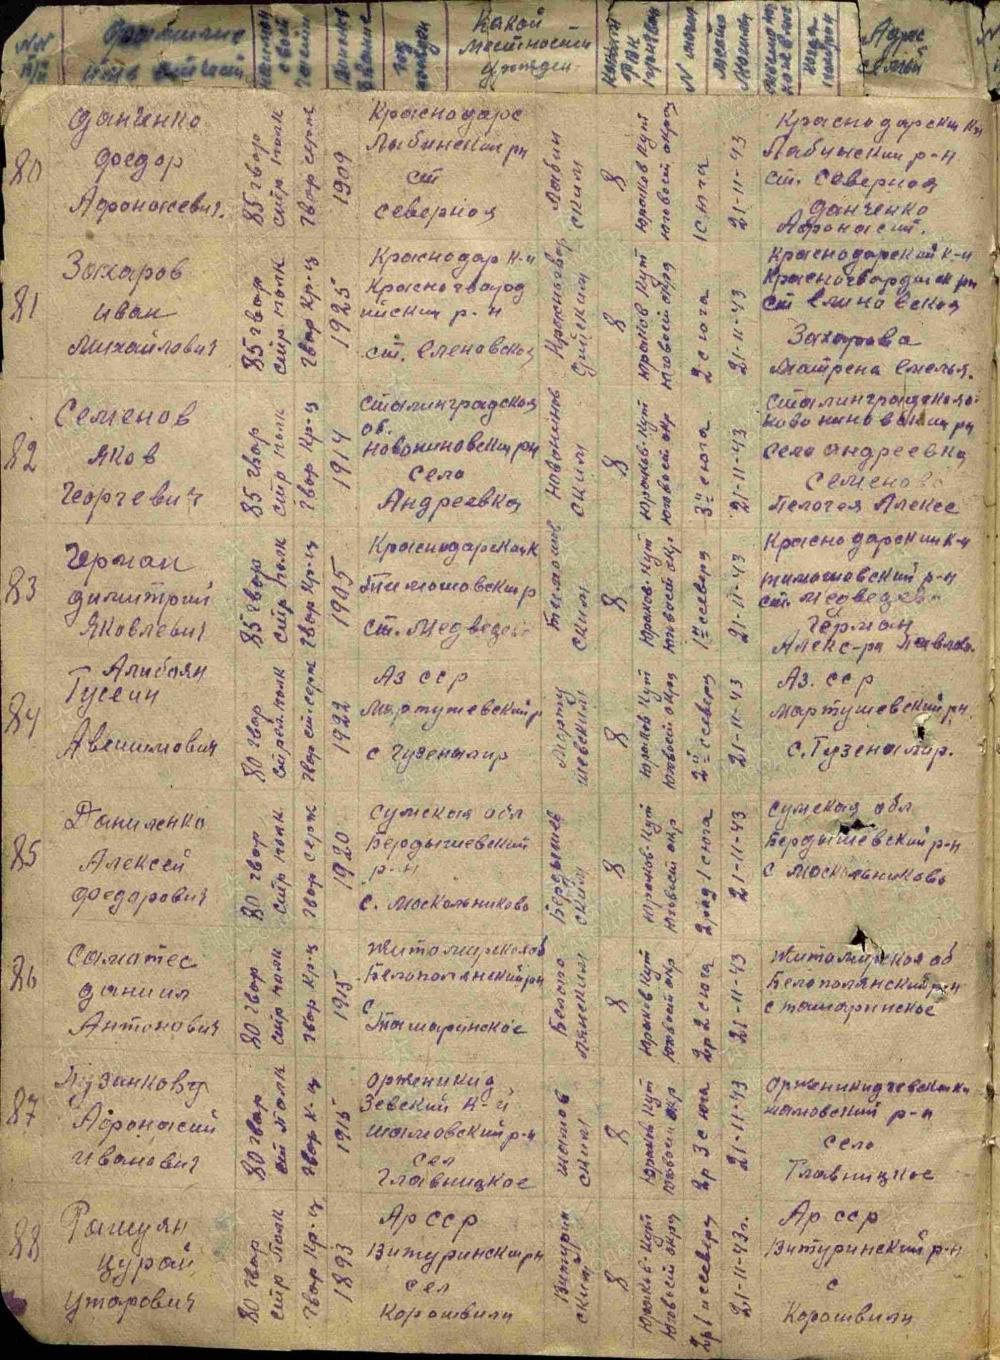 NN п/п
Фамилия имя отчест.
Какой местности урожден.
Адрес семьи
80
Данченко
Федор
Афонасевич.
85 гвар
стр полк
гвар серж
1909
Краснодарс
Лабинский рн
ст
северная
Лабин
ский
8
Юраков Кут
юговост окра
1 с юга
21-11-43
Краснодарский кй
Лабинский р-н
ст. северная
Данченко
Афонасий.
81
Захаров
Иван
Михайлович
85 гвар
стр полк
гвар кр-ц
1925
Краснодар к-й
Красногвард
ийский р-н
ст. Еленовская
8
Юраков Кут
юговост окра
2 с юга
21-11-43
Краснодарский к-й
Красногвардийск рн
ст Елиновская
Захарова
Матрена Емелья.
82
Семенов
Яков
Георгевич
85 гвар
стр полк
гвар кр-ц
1914
Сталинградская
об.
Новониновский рн
село
Андреевка
Новонинов
ский
8
Юраков-Кут
юговост окр
3й с юга
21-11-43
Сталинградская о
Новониновский рн
село Андреевка
Семенова
Пелогея Алексе
83
Герман
Димитрий
Яковлевич
85 гвар
стр полк
гвар кр-ц
1905
Краснодарский к
Тимошовский р
ст. Медведев
Тимошов
ский
8
Юраков-Кут
юговост окр
1й с севера
21-11-43
Краснодарский к-й
Тимошовский р-н
ст. Медведев
Герман
Алекс-ра Павлов.
84
Алибоян
Гусеин
Авенимович
80 гвар
стрел. полк
гвар ст. серж
1922
Аз сср
Мартушевский р
с Гузенапир
Марту
шевский
8
Юраков Кут
юговост окра
2й с севера
21-11-43
Аз. сср
Мартушевский рн.
с. Гузенапир.
85
Даниленко
Алексей
Федарович
80 гвар
стр полк
гвар серж
1920
Сумская обл
Бердышевский
р-н
с. Москольниково
Бердышев
ский
8
Юраков-Кут
юговост окр
2 ряд 1 с юга
21-11-43
Сумская обл
Бердышевский р-н
с Москольниково
86
Саматес
Даниил
Антонович
80 гвар
стр полк
гвар кр-ц
1915
Житомирская об
Белополянский рн
с
Татаринское
Белопо
лянский
8
Юраков Кут
юговост окр
2р 2 с юга
21-11-43
Житомирская об
Белополянский рн
с татаринское
87
Лузанковз
Афонасий
Иванович
80 гвар
ст полк
гвар к-ц
1915
Орженикид
зевский к-й
шамовский р-н
сел
Главницкое
шамов
ский
8
Юраков Кут
юговост окр
2р 3 с юга
21-11-43
Орженикидзевский к
шамовский р-н
село
Главницкое
88
Рашуян
Цурай
Утарович
80 гвар
стр полк
гвар кр-ц
1893
Ар сср
Витуринский рн
сел
Корошвили
Витурин
ский
8
Юраков-Кут
юговост окра
2р 1 и северу
21-11-43г.
Ар сср
Витуринский р-н
с
Корошвили